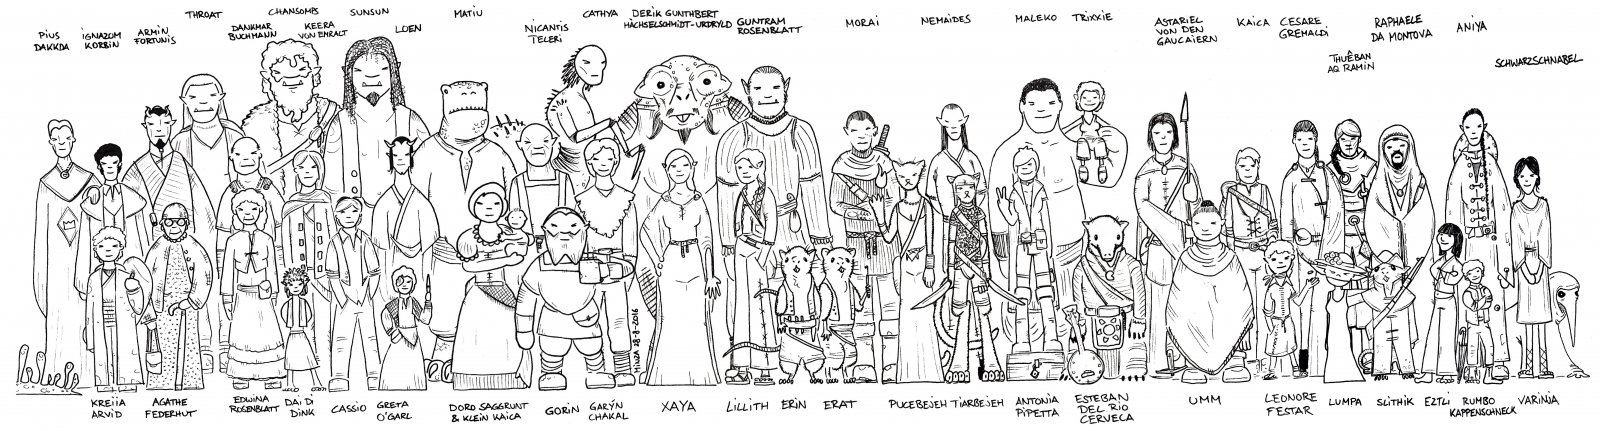 PIUS
DAKKDA
IGNAZOM
KORBIN
ARMIN
FORTUNIS
THROAT
DANKMAR
BUCHMANN
CHANSOMPS
KEERA
VON EMRALT
SUNSUN
LOEN
MATIU
NICANTIS
TELERI
CATHYA
DERIK GUNTHBERT
HÄCHSELSCHMIDT-URDRYLD
GUNTRAM
ROSENBLATT
MORAI
NEMAIDES
MALEKO
TRIXXIE
ASTARIEL
VON DEN
GAUCAIERN
KAICA
CESARE
GREMALDI
THUÊBAN
AQ RAMIN
RAPHAELE
DA MONTOVA
ANIYA
SCHWARZSCHNABEL
KREIIA
ARVID
AGATHE
FEDERHUT
EDWINA
ROSENBLATT
DAI DI
DINK
CASSIO
GRETA
O'GARL
DORO SAGGRUNT
& KLEIN KAICA
GORIN
GARÝN
CHAKAL
XAYA
LILLITH
ERIN
ERAT
PUCEBEJEH
TIARBEJEH
ANTONIA
PIPETTA
ESTEBAN
DEL RIO
CERVECA
UMM
LEONORE
FESTAR
LUMPA
SLITHIK
EZTLI
RUMBO
KAPPENSCHNECK
VARINIA